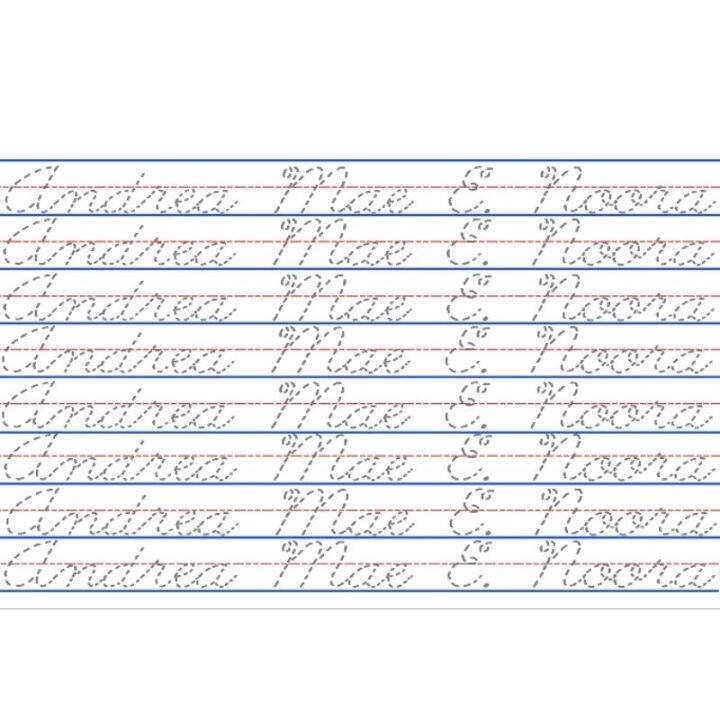 Andrea Mae E. Noora
Andrea Mae E. Noora
Andrea Mae E. Noora
Andrea Mae E. Noora
Andrea Mae E. Noora
Andrea Mae E. Noora
Andrea Mae E. Noora
Andrea Mae E. Noora